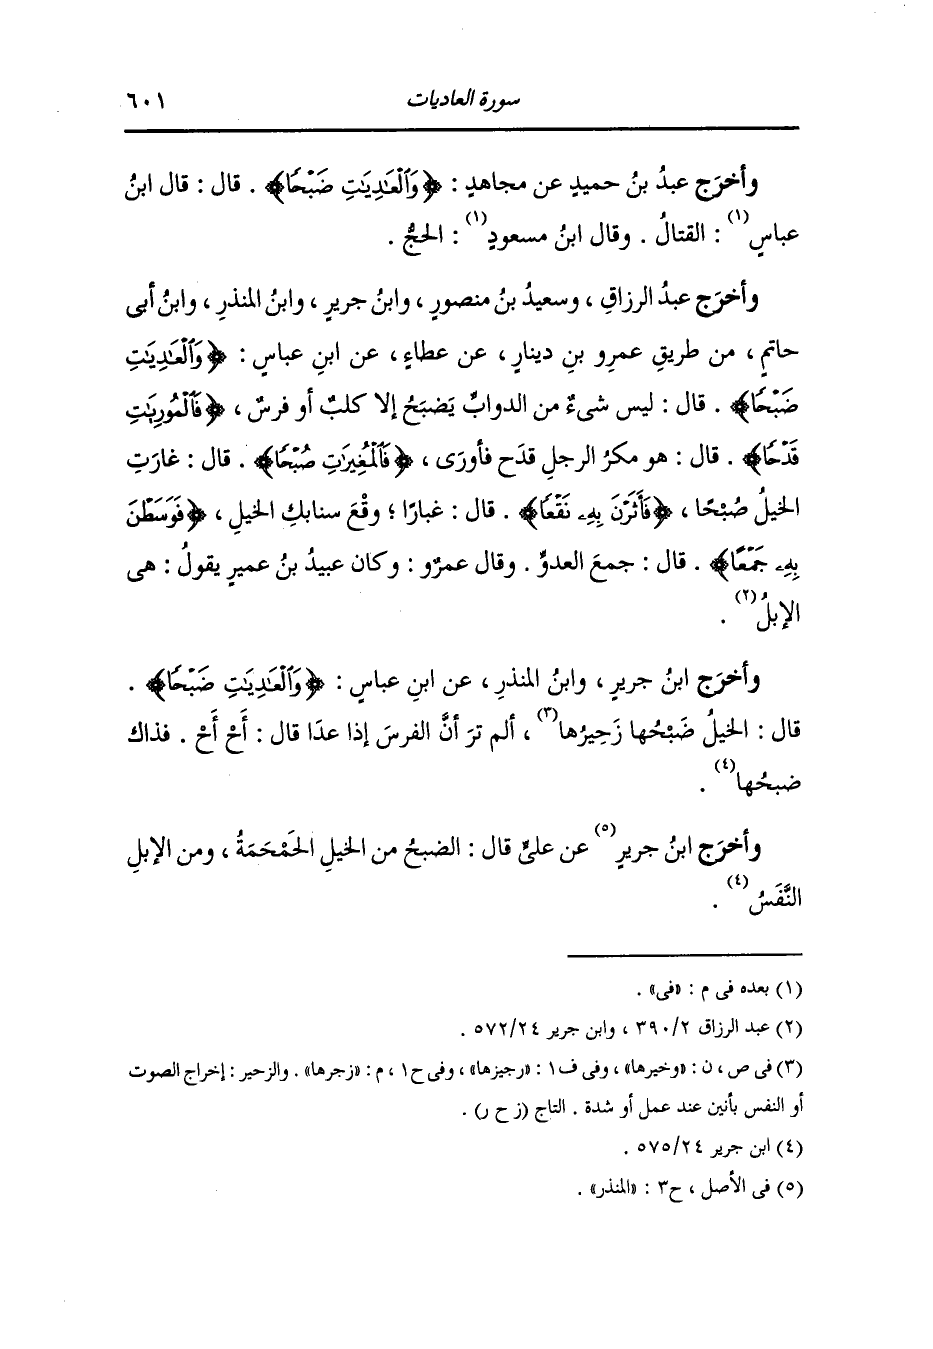 سورة العاديات ٦٠١
وأخرَج عبدُ بنُ حميدٍ عن مجاهدٍ : ﴿وَٱلْعَٰدِيَٰتِ ضَبْحًا﴾ . قال : قال ابنُ
عباسٍ(١) : القتالُ . وقال ابنُ مسعودٍ(١) : الحجُّ .
وأخرَج عبدُ الرزاقِ ، وسعيدُ بنُ منصورٍ ، وابنُ جريرٍ ، وابنُ المنذرِ ، وابنُ أبى
حاتمٍ ، من طريقِ عمرِو بنِ دينارٍ ، عن عطاءٍ ، عن ابنِ عباسٍ : ﴿وَٱلْعَٰدِيَٰتِ
ضَبْحًا﴾ . قال : ليس شىءٌ من الدوابِّ يَضبَحُ إلا كلبٌ أو فرسٌ ، ﴿فَٱلْمُورِيَٰتِ
قَدْحًا﴾ . قال : هو مكرُ الرجلِ قدَح فأورَى ، ﴿فَٱلْمُغِيرَٰتِ صُبْحًا﴾ . قال : غارَتِ
الخيلُ صُبْحًا ، ﴿فَأَثَرْنَ بِهِۦ نَقْعًا﴾ . قال : غبارًا ؛ وقْعَ سنابكِ الخيلِ ، ﴿فَوَسَطْنَ
بِهِۦ جَمْعًا﴾ . قال : جمعَ العدوِّ . وقال عمرٌو : وكان عبيدُ بنُ عميرٍ يقولُ : هى
الإبلُ(٢) .
وأخرَج ابنُ جريرٍ ، وابنُ المنذرِ ، عن ابنِ عباسٍ : ﴿وَٱلْعَٰدِيَٰتِ ضَبْحًا﴾ .
قال : الخيلُ ضَبْحُها زَحِيرُها(٣) ، ألم ترَ أنَّ الفرسَ إذا عدَا قال : أَحْ أَحْ . فذاك
ضبحُها(٤) .
وأخرَج ابنُ جريرٍ(٥) عن علىٍّ قال : الضبحُ من الخيلِ الحَمْحَمَةُ ، ومن الإبلِ
النَّفَسُ(٤) .
(١) بعده فى م : «فى» .
(٢) عبد الرزاق ٣٩٠/٢ ، وابن جرير ٥٧٢/٢٤ .
(٣) فى ص ، ن : «وخيرها» ، وفى ف١ : «رجيزها» ، وفى ح١ ، م : «زجرها» . والزحير : إخراج الصوت
أو النفس بأنين عند عمل أو شدة . التاج (ز ح ر) .
(٤) ابن جرير ٥٧٥/٢٤ .
(٥) فى الأصل ، ح٣ : «المنذر» .